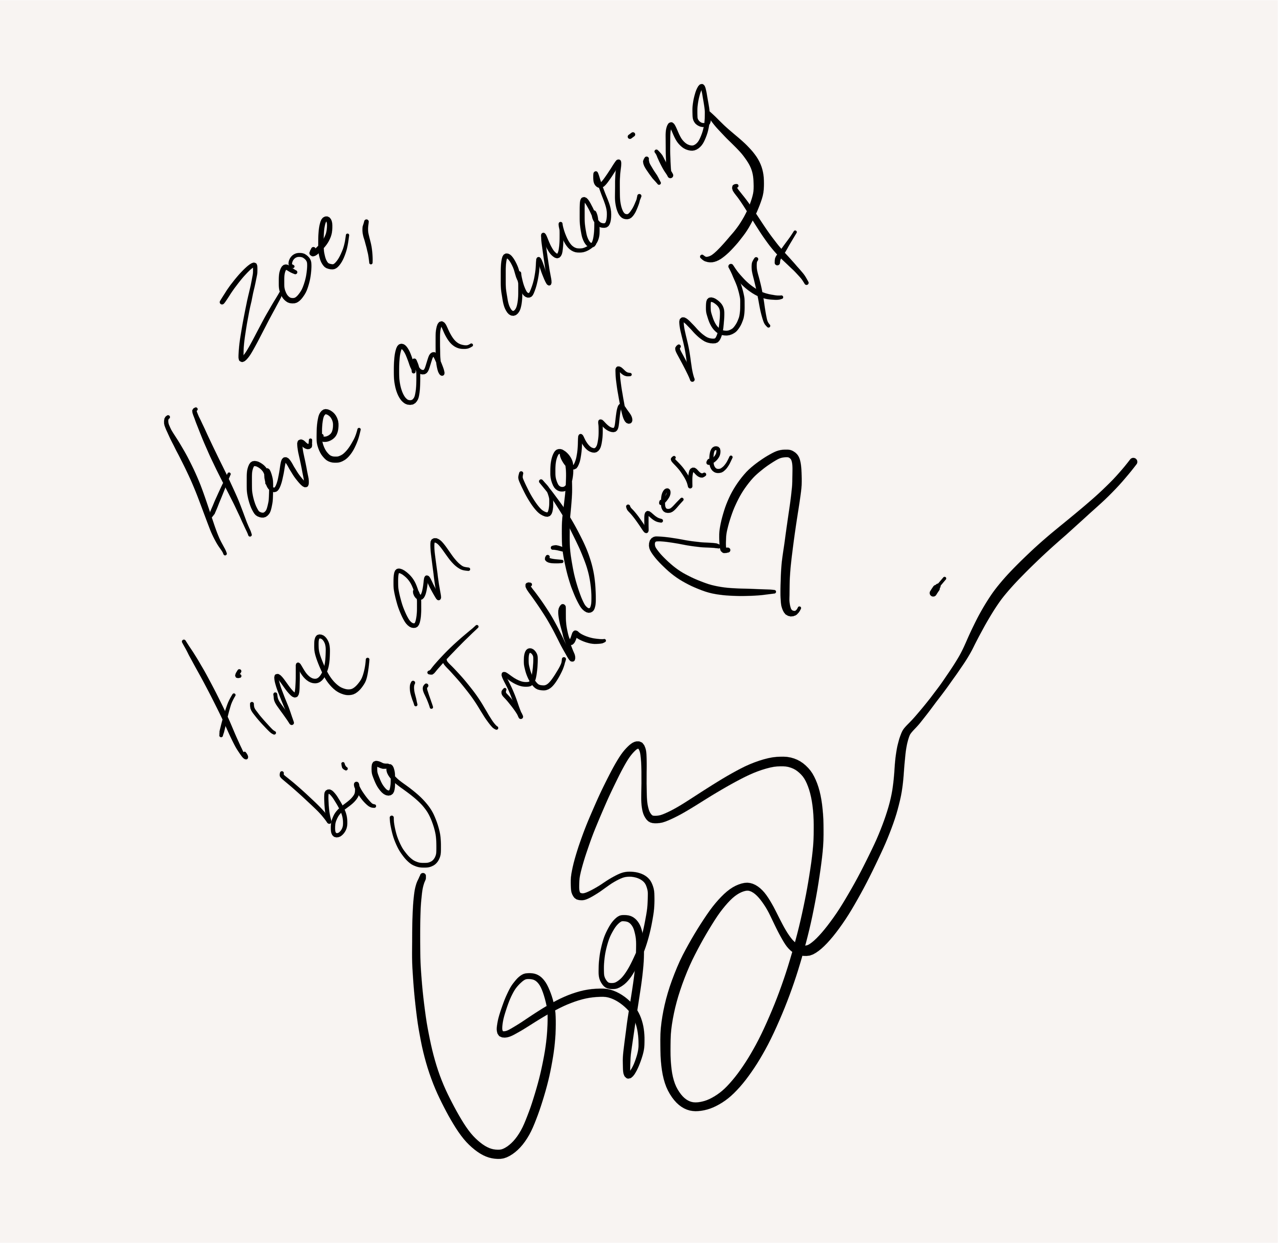 Zoe,
Have an amazing
time on your next
big "Trek"
hehe